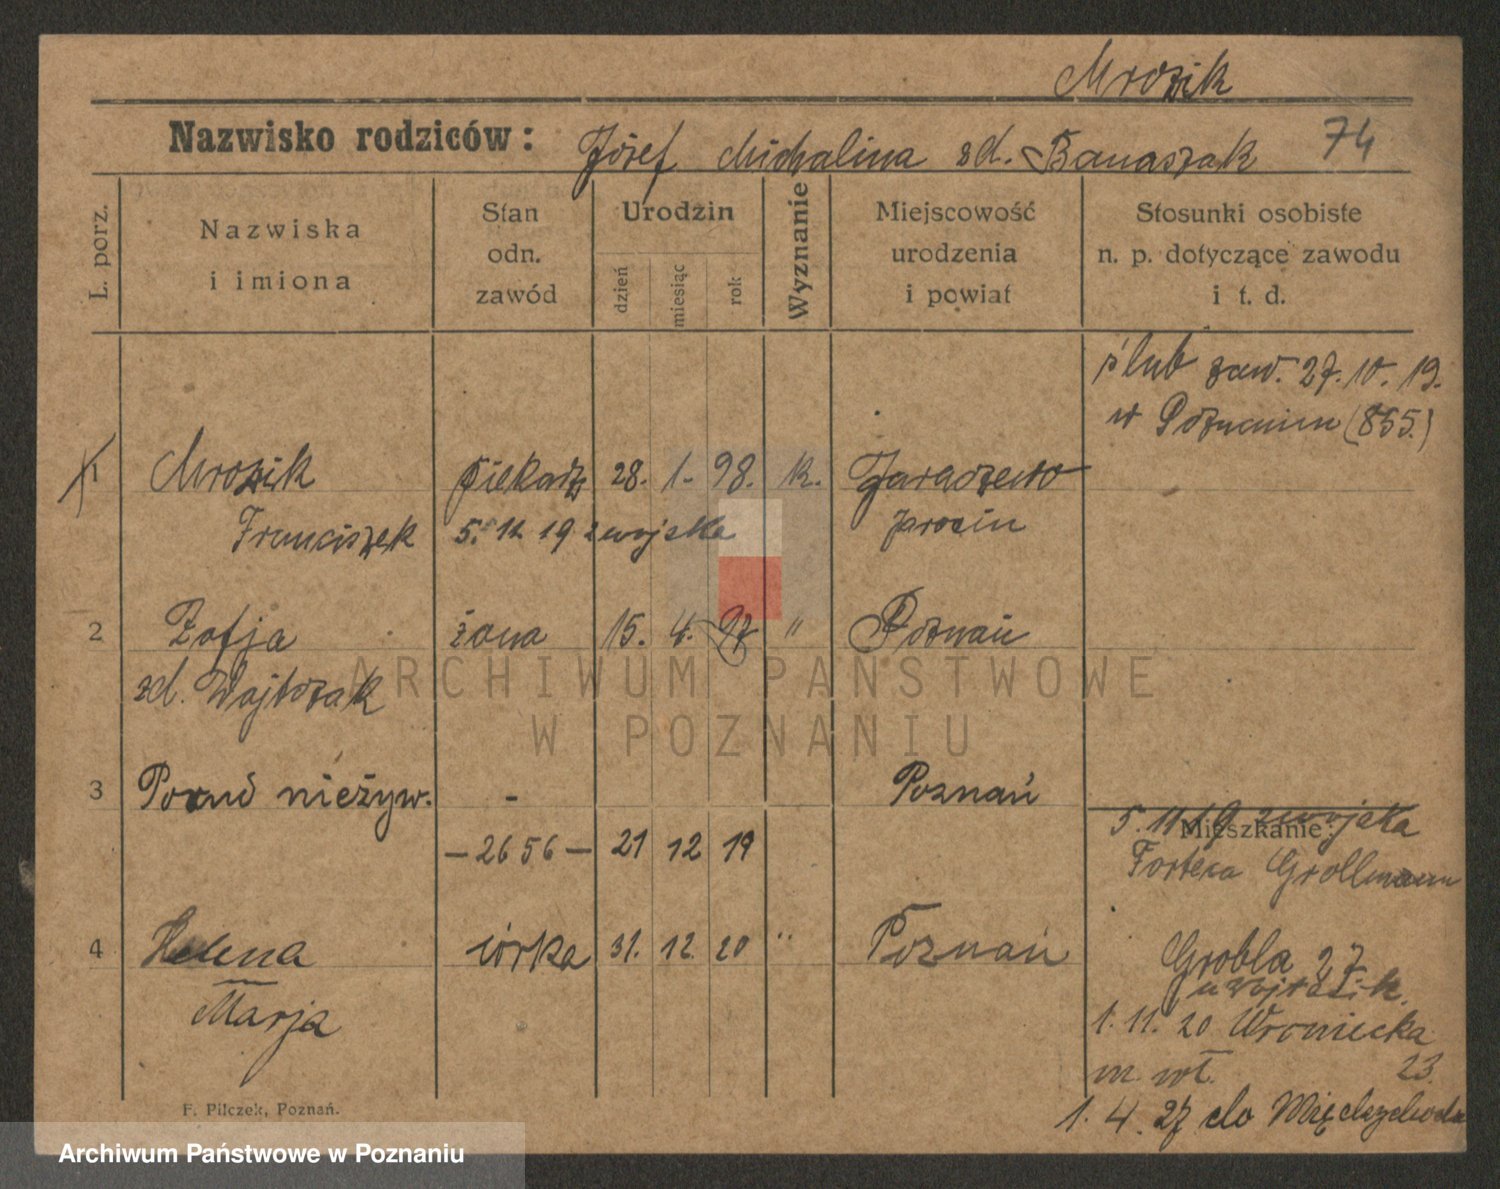 Mrozik
Nazwisko rodziców: Józef Michalina zd. Banaszak 74
L. porz.
Nazwiska
i imiona
Stan
odn.
zawód
Urodzin
dzień
miesiąc
rok
Wyznanie
Miejscowość
urodzenia
i powiat
Stosunki osobiste
n. p. dotyczące zawodu
i t. d.
ślub zaw. 27. 10. 19.
w Poznaniu (855.)
1 Mrozik piekarz 28. 1. 98. k. Jaraczewo
Franciszek 5. 11 19 z wojska Jarocin
2 Zofja żona 15. 4. 97 " Poznań
zd. Wojtczak
ARCHIWUM PAŃSTWOWE
W POZNANIU
3 Poród nieżyw. - Poznań
— 2656 — 21 12 19
5. 11 19 z wojska
Mieszkanie:
Forteca Grollmann
4 Helena córka 31. 12. 20 " Poznań
Marja
Grobla 27
u Wojtczik.
1. 11. 20 Wroniecka
m. wł. 23.
1. 4. 27 do
F. Pilczek, Poznań.
Archiwum Państwowe w Poznaniu